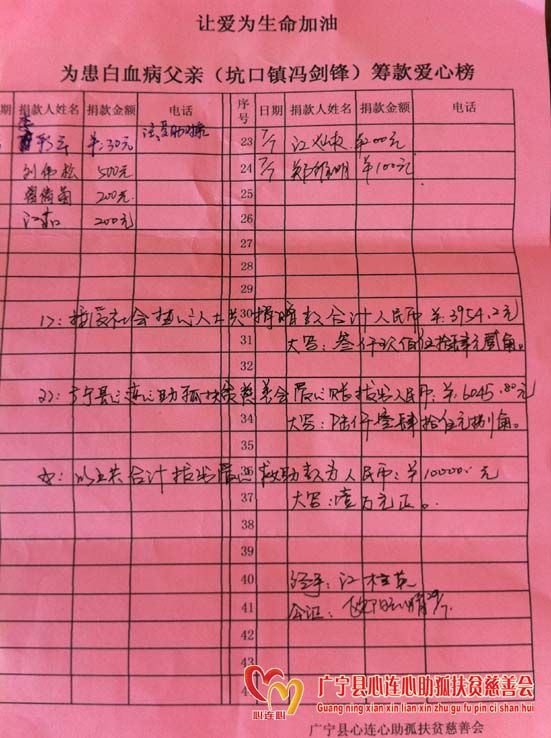 让爱为生命加油
为患白血病父亲（坑口镇冯剑锋）筹款爱心榜
期 捐款人姓名 捐款金额 电话 序号 日期 捐款人姓名 捐款金额 电话
彩云 ¥:30元 23 7/1 江 00元
刘伟松 500元 24 7/1 明 ¥100元
200元 25
江 200元 26
27
28
29
1>: 接受社会热心人士共捐赠款合计人民币 ¥:3954.2元 30
31 大写: 叁仟玖佰伍拾肆元贰角。
32
2>: 广宁县心连心助孤扶贫慈善会爱心账拨出人民币 ¥:6045.80元 33
34 大写: 陆仟零肆拾伍元捌角。
35
以上共合计拨出爱心救助款为人民币: ¥10000.元 36
37 大写: 壹万元正。
38
39
40 经手: 江
41 公证: 欧阳
42
43
44
4
心连心
广宁县心连心助孤扶贫慈善会
Guang ning xian xin lian xin zhu gu fu pin ci shan hui
广宁县心连心助孤扶贫慈善会